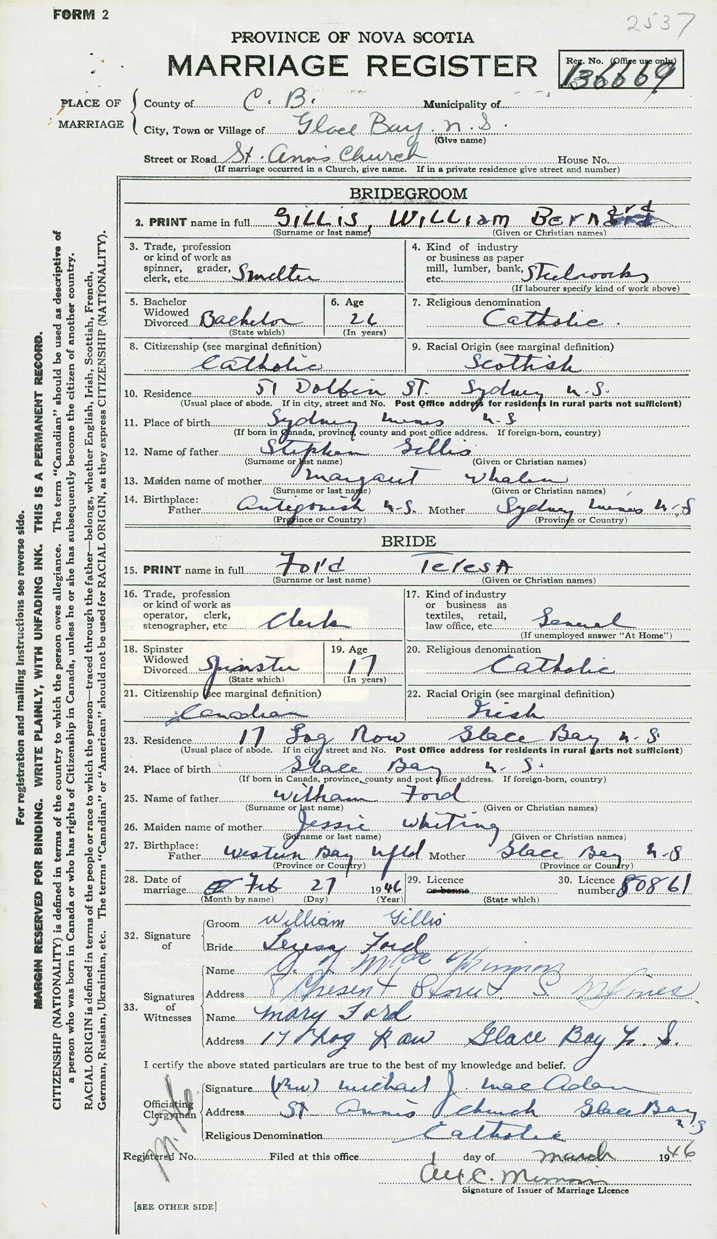 FORM 2
2537
PROVINCE OF NOVA SCOTIA
MARRIAGE REGISTER
Reg. No. (Office use only)
136669
PLACE OF MARRIAGE
County of C. B. Municipality of
City, Town or Village of Glace Bay. N. S.
(Give name)
Street or Road St. Ann's Church House No.
(If marriage occurred in a Church, give name. If in a private residence give street and number)
BRIDEGROOM
2. PRINT name in full GILLIS, WILLIAM BERNARD
(Surname or last name) (Given or Christian names)
3. Trade, profession or kind of work as spinner, grader, clerk, etc. Smelter
4. Kind of industry or business as paper mill, lumber, bank, etc. Steelworks
(If labourer specify kind of work above)
5. Bachelor Widowed Divorced Bachelor
(State which)
6. Age 26
(In years)
7. Religious denomination Catholic.
8. Citizenship (see marginal definition) Catholic
9. Racial Origin (see marginal definition) Scottish
10. Residence 51 Dolbin St Sydney N.S.
(Usual place of abode. If in city, street and No. Post Office address for residents in rural parts not sufficient)
11. Place of birth Sydney Mines N.S
(If born in Canada, province, county and post office address. If foreign-born, country)
12. Name of father Stephen Gillis
(Surname or last name) (Given or Christian names)
13. Maiden name of mother Margaret Whalen
(Surname or last name) (Given or Christian names)
14. Birthplace: Father Antigonish N.S. Mother Sydney Mines N-S
(Province or Country) (Province or Country)
BRIDE
15. PRINT name in full Ford Teresa
(Surname or last name) (Given or Christian names)
16. Trade, profession or kind of work as operator, clerk, stenographer, etc. Clerk
17. Kind of industry or business as textiles, retail, law office, etc. General
(If unemployed answer "At Home")
18. Spinster Widowed Divorced Spinster
(State which)
19. Age 17
(In years)
20. Religious denomination Catholic
21. Citizenship (see marginal definition) Canadian
22. Racial Origin (see marginal definition) Irish
23. Residence 17 Row Glace Bay N-S
(Usual place of abode. If in city, street and No. Post Office address for residents in rural parts not sufficient)
24. Place of birth Glace Bay N. S.
(If born in Canada, province, county and post office address. If foreign-born, country)
25. Name of father William Ford
(Surname or last name) (Given or Christian names)
26. Maiden name of mother Jessie Whiting
(Surname or last name) (Given or Christian names)
27. Birthplace: Father Western Bay Nfld Mother Glace Bay N-S
(Province or Country) (Province or Country)
28. Date of marriage Feb 27 1946
(Month by name) (Day) (Year)
29. Licence or banns
(State which)
30. Licence number 80861
32. Signature of
Groom William Gillis
Bride Teresa Ford
33. Signatures of Witnesses
Name
Address S. Mines
Name Mary Ford
Address 17 Row Glace Bay N. S.
I certify the above stated particulars are true to the best of my knowledge and belief.
Officiating Clergyman
Signature (Rev) Michael J. MacAdam
Address St Ann's Church Glace Bay N S
Religious Denomination Catholic
Registered No. Filed at this office 1 day of March 1946
Alex C.
Signature of Issuer of Marriage Licence
[SEE OTHER SIDE]
For registration and mailing instructions see reverse side.
MARGIN RESERVED FOR BINDING. WRITE PLAINLY, WITH UNFADING INK. THIS IS A PERMANENT RECORD.
CITIZENSHIP (NATIONALITY) is defined in terms of the country to which the person owes allegiance. The term "Canadian" should be used as descriptive of
a person who was born in Canada or who has rights of Citizenship in Canada, unless he or she has subsequently become the citizen of another country.
RACIAL ORIGIN is defined in terms of the people or race to which the person—traced through the father—belongs, whether English, Irish, Scottish, French,
German, Russian, Ukrainian, etc. The terms "Canadian" or "American" should not be used for RACIAL ORIGIN, as they express CITIZENSHIP (NATIONALITY).